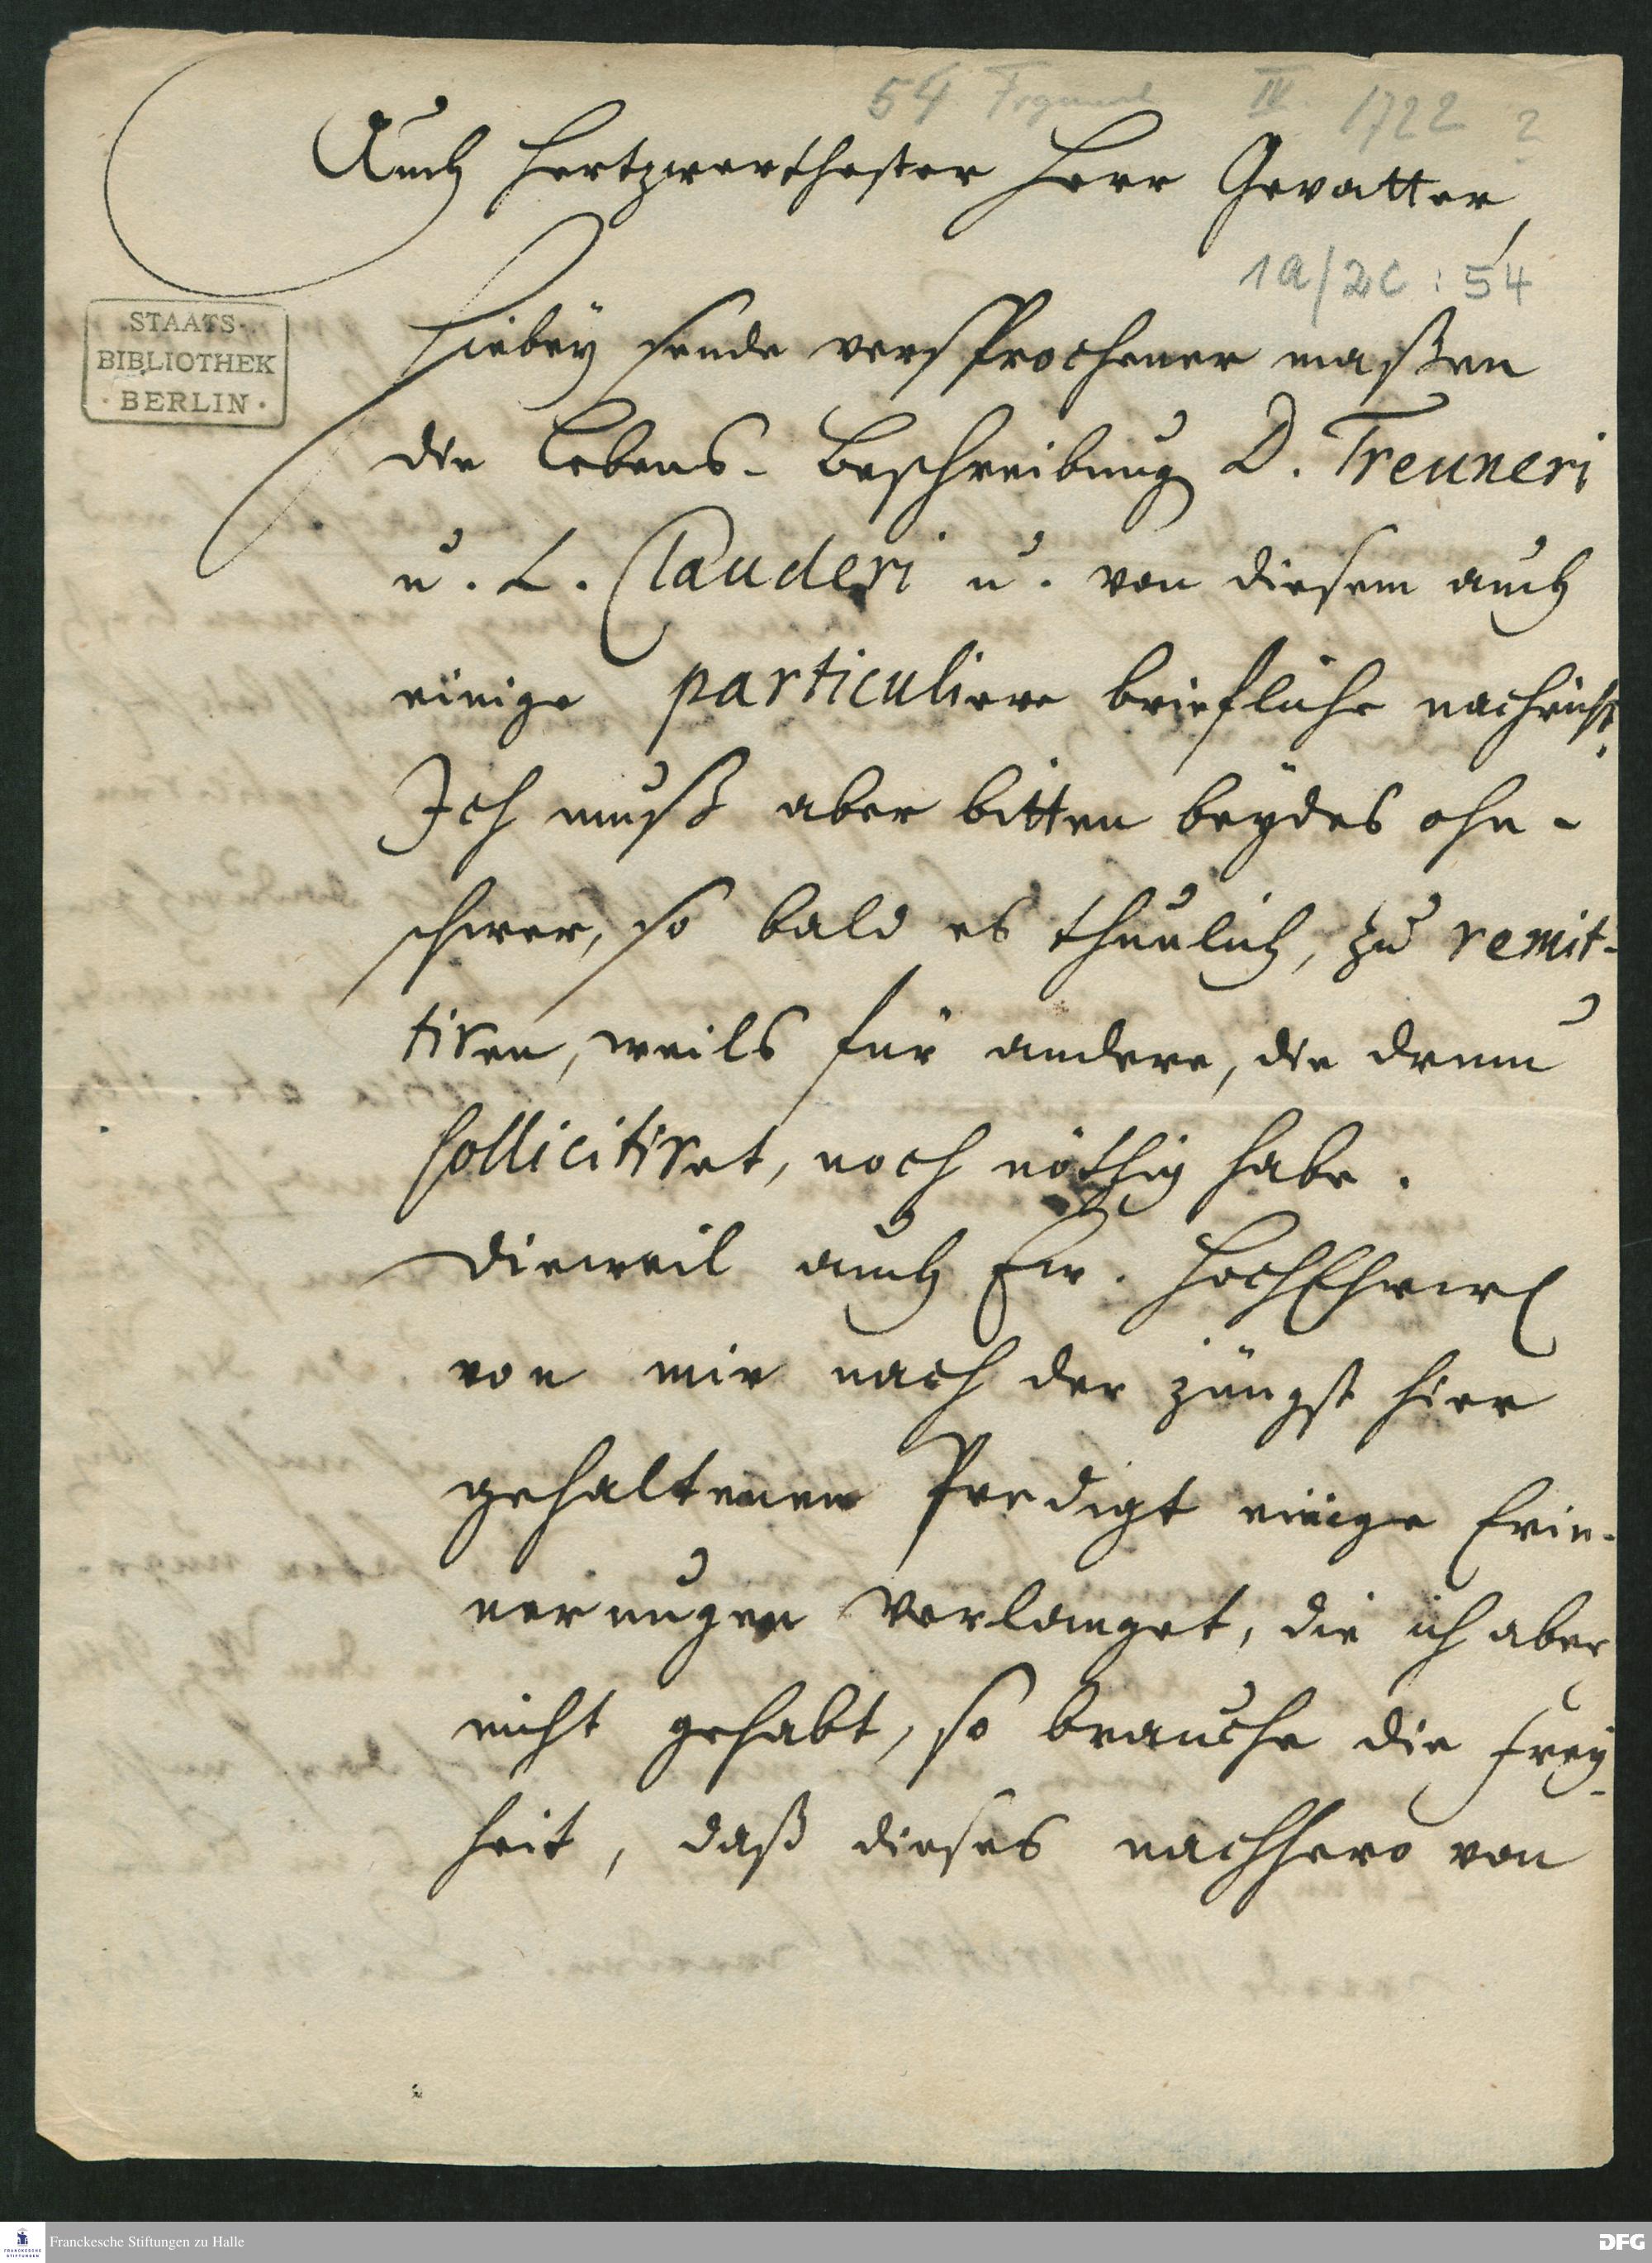 54 Fragment IV 1722 ?
Auch Hertzwerthester Herr Gevatter,
1a/2c : 54
Hiebey sende versprochener maßen
STAATS-
BIBLIOTHEK
· BERLIN ·
die Lebens-Beschreibung D. Treuneri
u. L. Clauderi u. von diesem auch
einige particuliere briefliche nachricht.
Ich muß aber bitten beydes ohn-
schwer, so bald es thunlich, zu remit-
tiren, weils für andere, die drum
sollicitiret, noch nöthig habe.
Dieweil auch Ew. HochEhrw
von mir nach der jüngst hier
gehaltenen Predigt einige Erin-
nerungen verlanget, die ich aber
nicht gehabt, so brauche die Frey-
heit, daß dieses nachhero von
Franckesche Stiftungen zu Halle
DFG